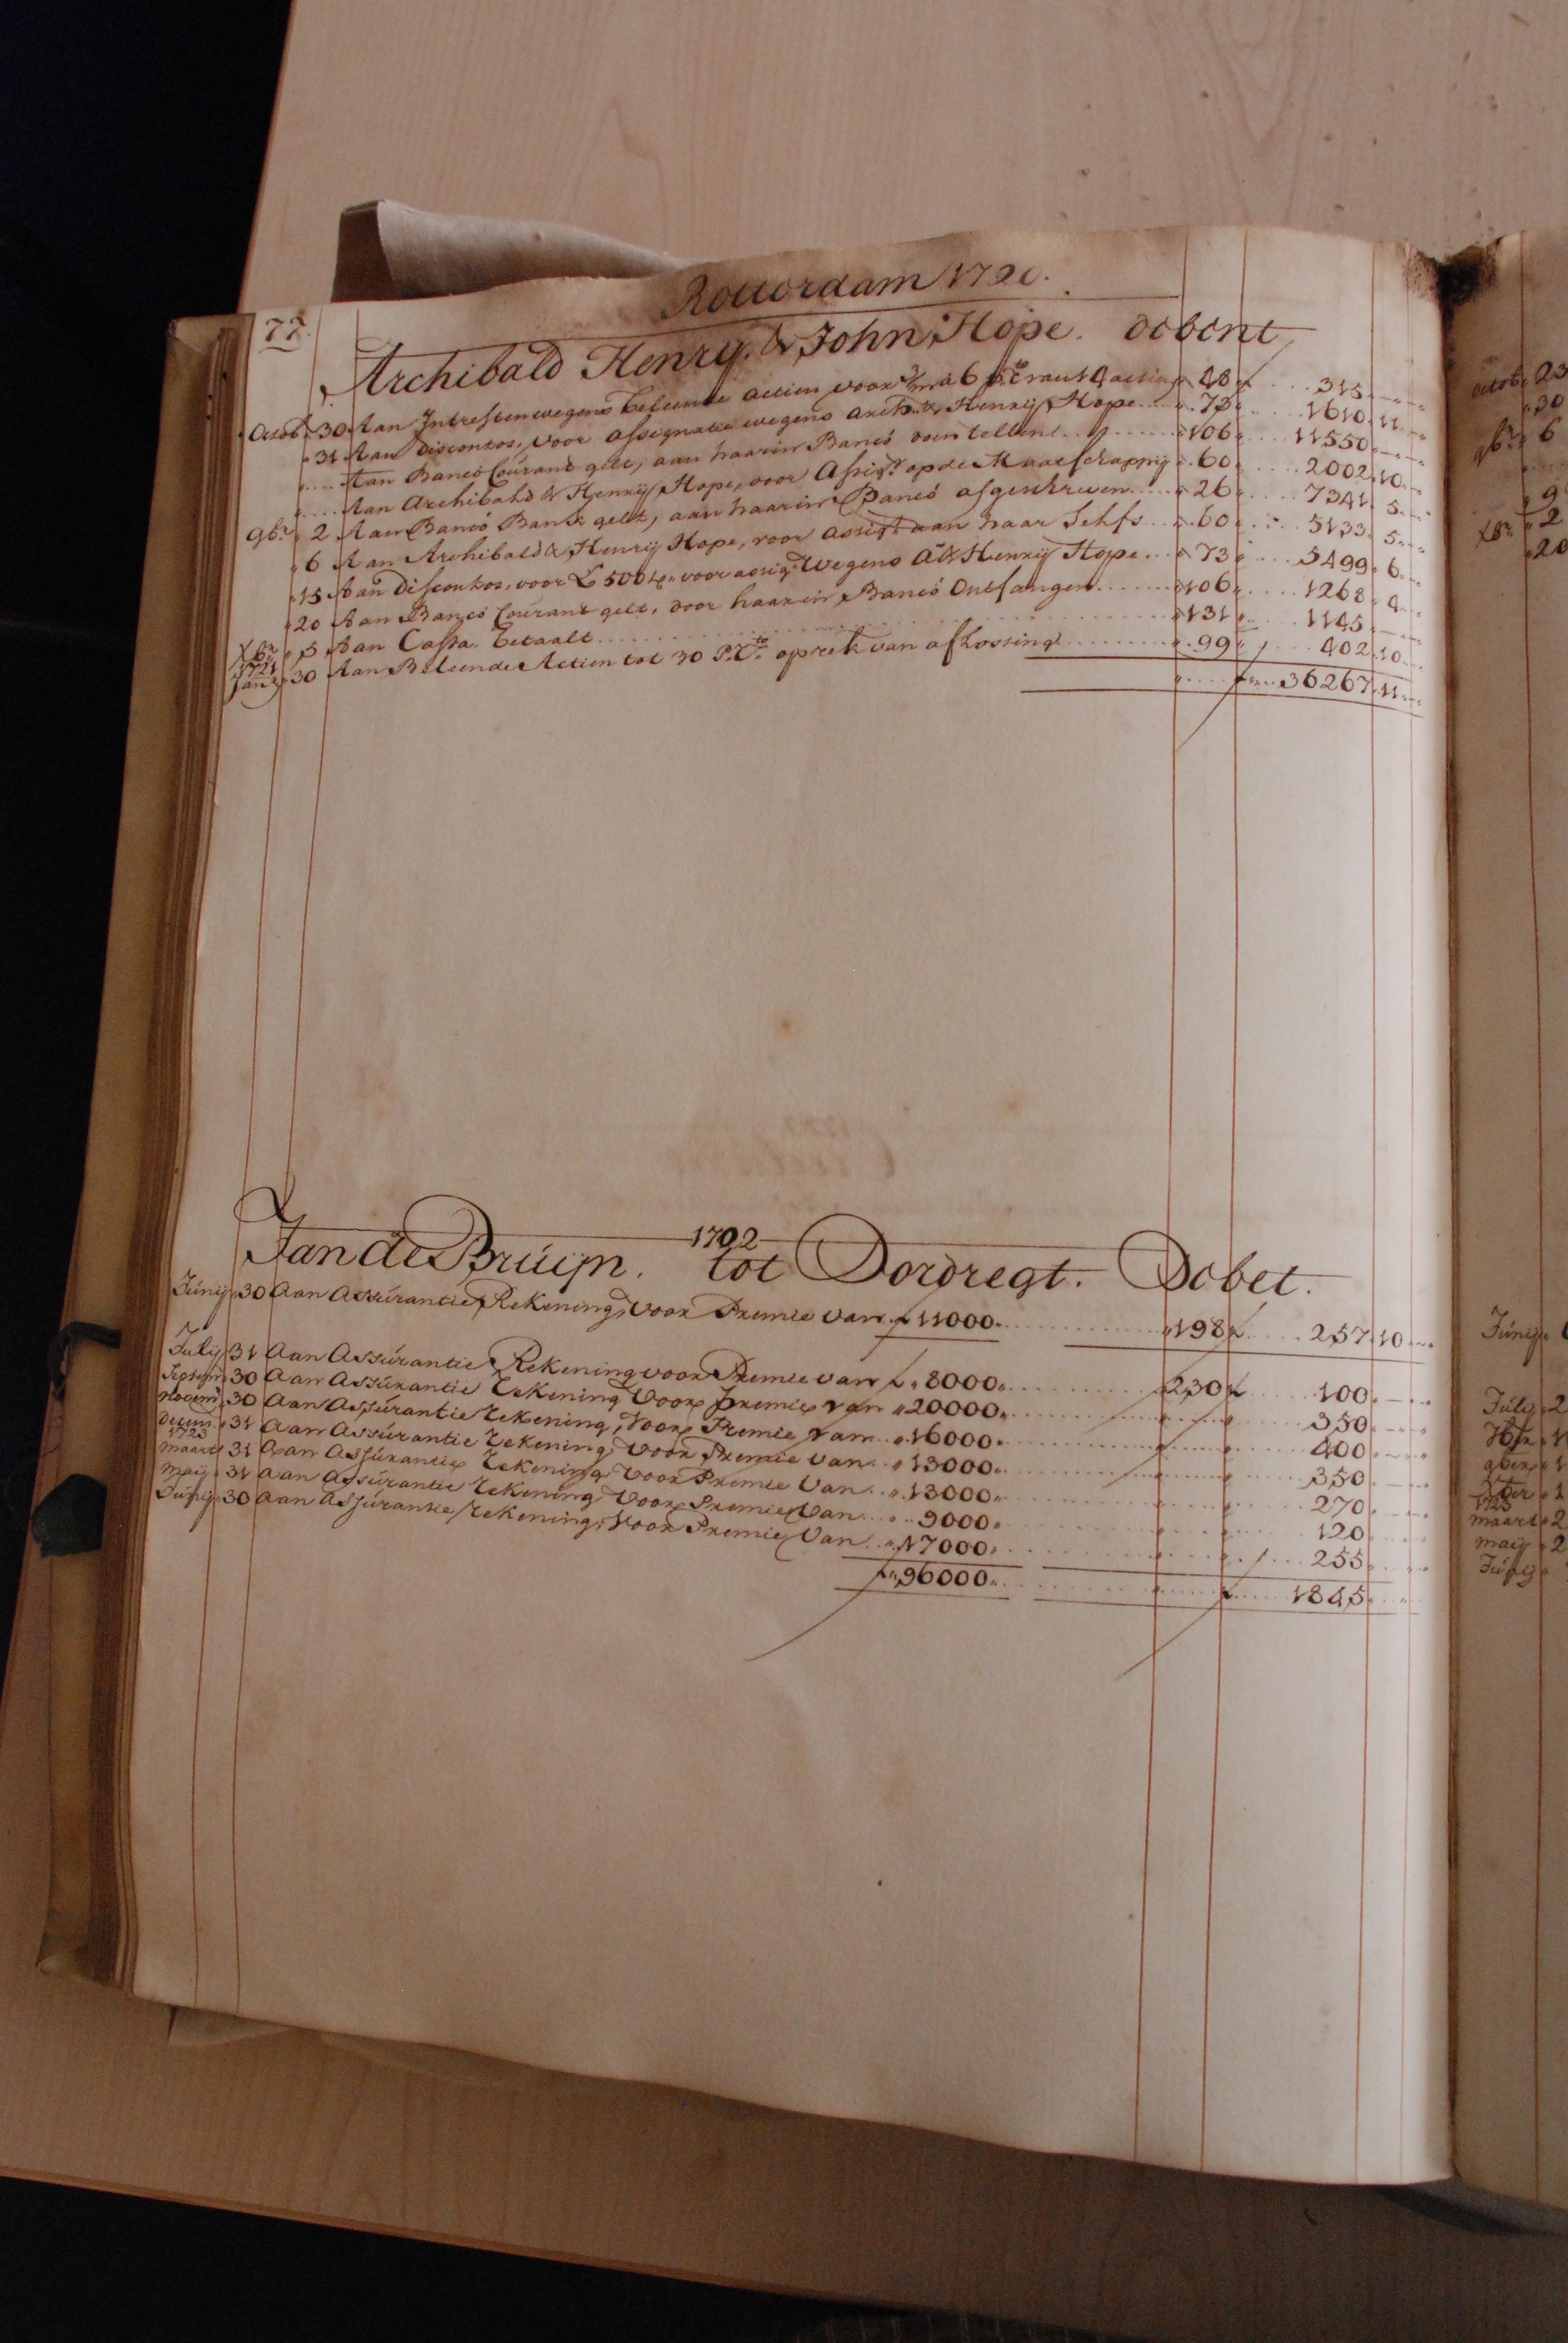 Rotterdam 1720.
77.
Archibald Henry & John Hope. debent
Octob. 30 Aan Intresten wegens beleende actien voor 3/m a 6 p. Cto. 4 actien 48 £ 315 „ — „
„ 31 Aan Discontos, voor assignatie wegens Archb. & Henrij Hope 73 „ 1610 „ 11 „
„ Aan Banco Courant gelt, aan haar in Banco doen tellen 106 „ 11550 „ — „
„ Aan Archibald & Henrij Hope, voor Assig.n op de Maatschappij 60 „ 2002 „ 10 „
9br. 2 Aan Banco Bank gelt, aan haar in Banco afgeschreven 26 „ 7341 „ 5 „
„ 6 Aan Archibald & Henrij Hope, voor assig.n aan haar Selfs 60 „ 5133 „ 5 „
„ 15 Aan Discontos, voor £ 500 voor assig. wegens A & Henrij Hope 73 „ 5499 „ 6 „
„ 20 Aan Banco Courant gelt, door haar in Banco Ontfangen 106 „ 1268 „ 4 „
Xbr. „ 5 Aan Cassa betaalt 131 „ 1145 „ — „
1721
Jan. „ 30 Aan Beleende Actien tot 30 P. Cto. op rek van aflossing 99 „ 402 „ 10 „
£ 36267 „ 11 „
1722
Jan de Bruijn. tot Dordregt. Debet.
Júnij „ 30 Aan Assúrantie Rekening, voor Premie van £ 11000 „ 198 £ 257 „ 10 „
Julij „ 31 Aan Assúrantie Rekening voor Premie van £ „ 8000 „ 230 £ 100 „ — „
Septem „ 30 Aan Assúrantie Rekening voor Premie van „ 20000 „ 350 „ — „
Novem „ 30 Aan Assúrantie Rekening, voor Premie van „ 16000 „ 400 „ — „
Decem „ 31 Aan Assúrantie Rekening voor Premie van „ 13000 „ 350 „ — „
1723
maart „ 31 Aan Assúrantie Rekening voor Premie van „ 13000 „ 270 „ — „
maij „ 31 Aan Assúrantie Rekening voor Premie van „ 9000 „ 120 „
Júnij „ 30 Aan Assúrantie Rekening, voor Premie van „ 17000 „ 255 „
£ „ 96000 „ £ 1845 „
octob. 23
„ 30
9br. „ 6
„ 9
Xbr. „ 2
„ 20
Júnij
Júlij „ 2
9ber „ 1
Xber „ 1
1723
maart „ 2
maij „ 2
Júnij